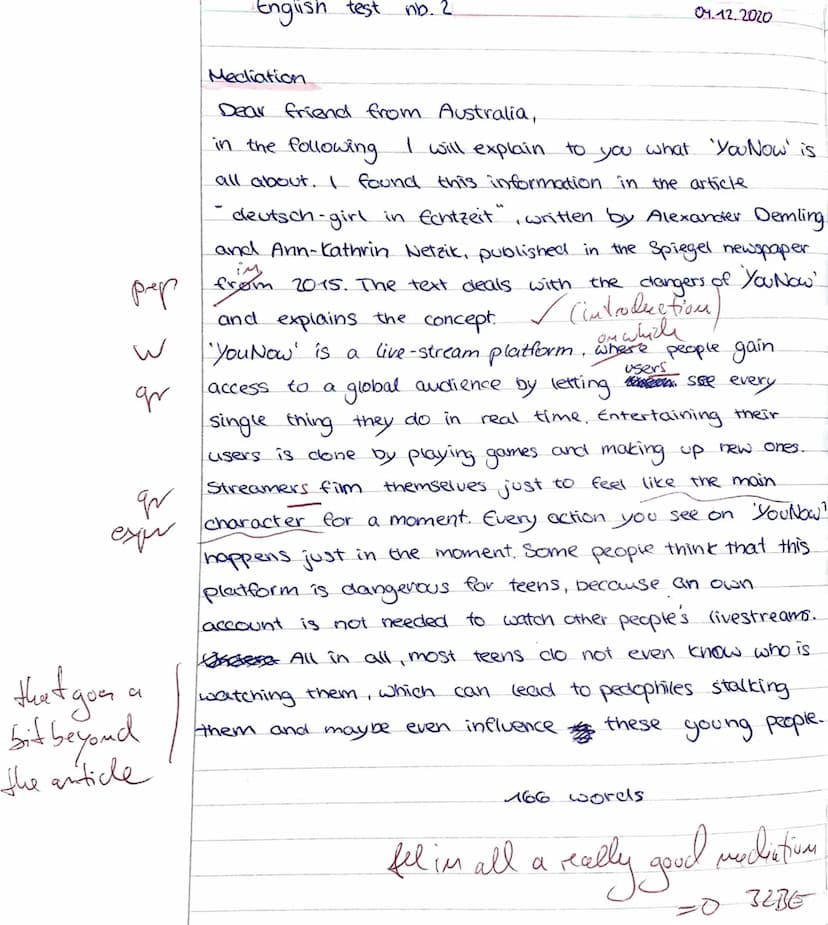 English test nb. 2
04.12.2020
Mediation
Dear friend from Australia,
in the following I will explain to you what 'YouNow' is
all about. I found this information in the article
"deutsch-girl in Echtzeit", written by Alexander Demling
and Ann-Kathrin Nezik, published in the Spiegel newspaper
in
prep from 2015. The text deals with the dangers of 'YouNow'
and explains the concept. ✓ (introduction)
on which
W 'YouNow' is a live-stream platform, where people gain
users
gr access to a global audience by letting see every
single thing they do in real time. Entertaining their
users is done by playing games and making up new ones.
gr Streamers film themselves just to feel like the main
expr character for a moment. Every action you see on 'YouNow'
happens just in the moment. Some people think that this
platform is dangerous for teens, because an own
account is not needed to watch other people's livestreams.
All in all, most teens do not even know who is
that goes a watching them, which can lead to pedophiles stalking
bit beyond them and maybe even influence these young people.
the article
166 words
All in all a really good mediation
=> 32BE